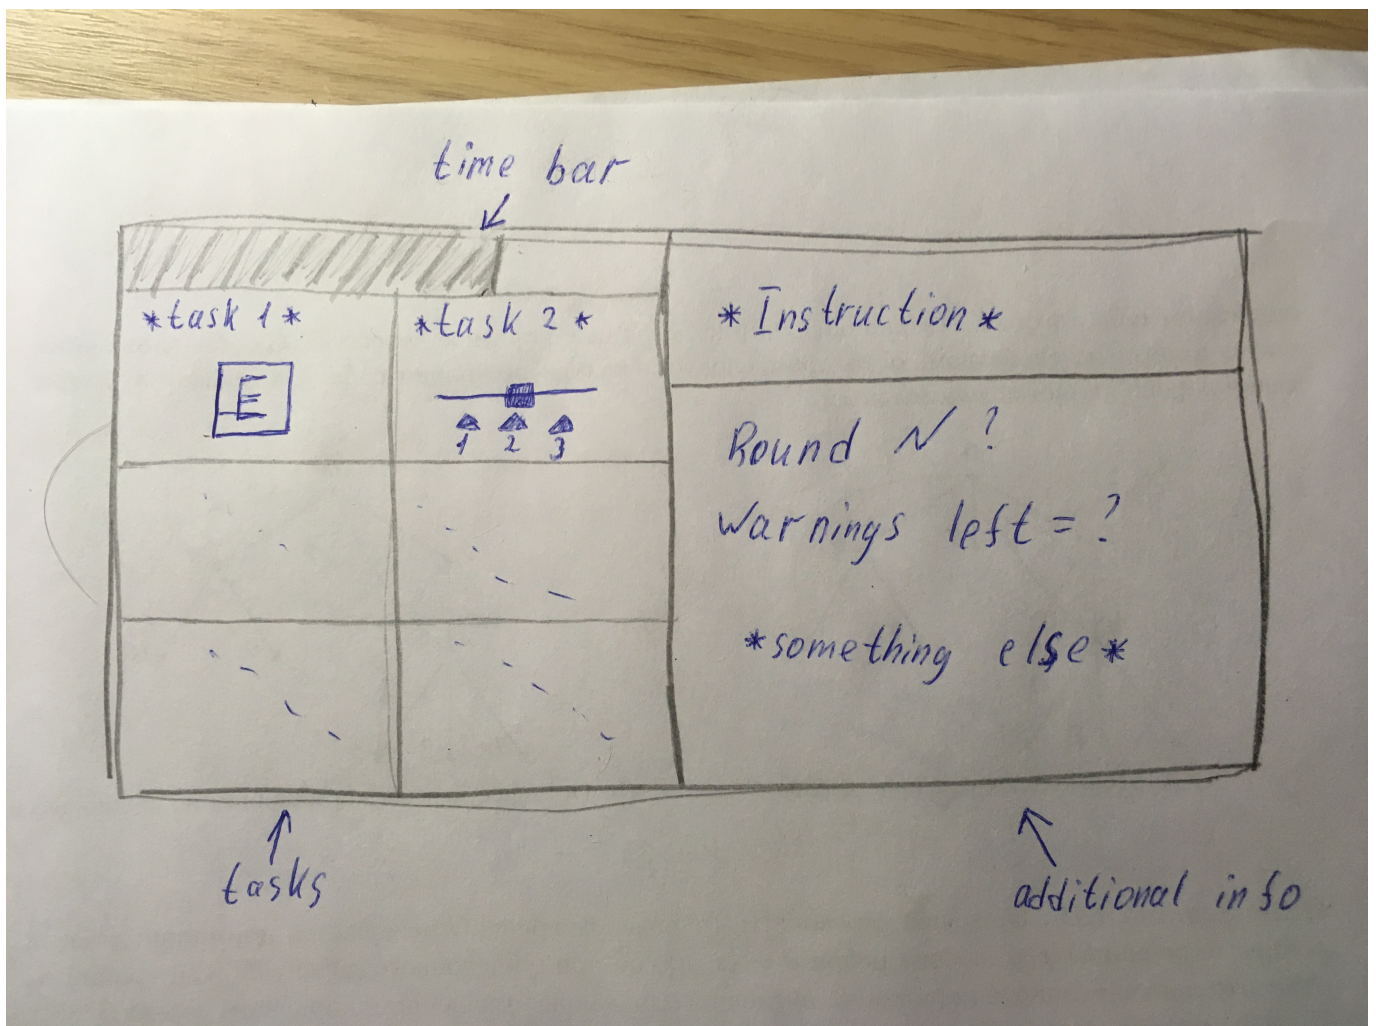 time bar
*task 1*
*task 2*
E
1 2 3
*Instruction*
Round N ?
Warnings left = ?
*something else*
tasks
additional info